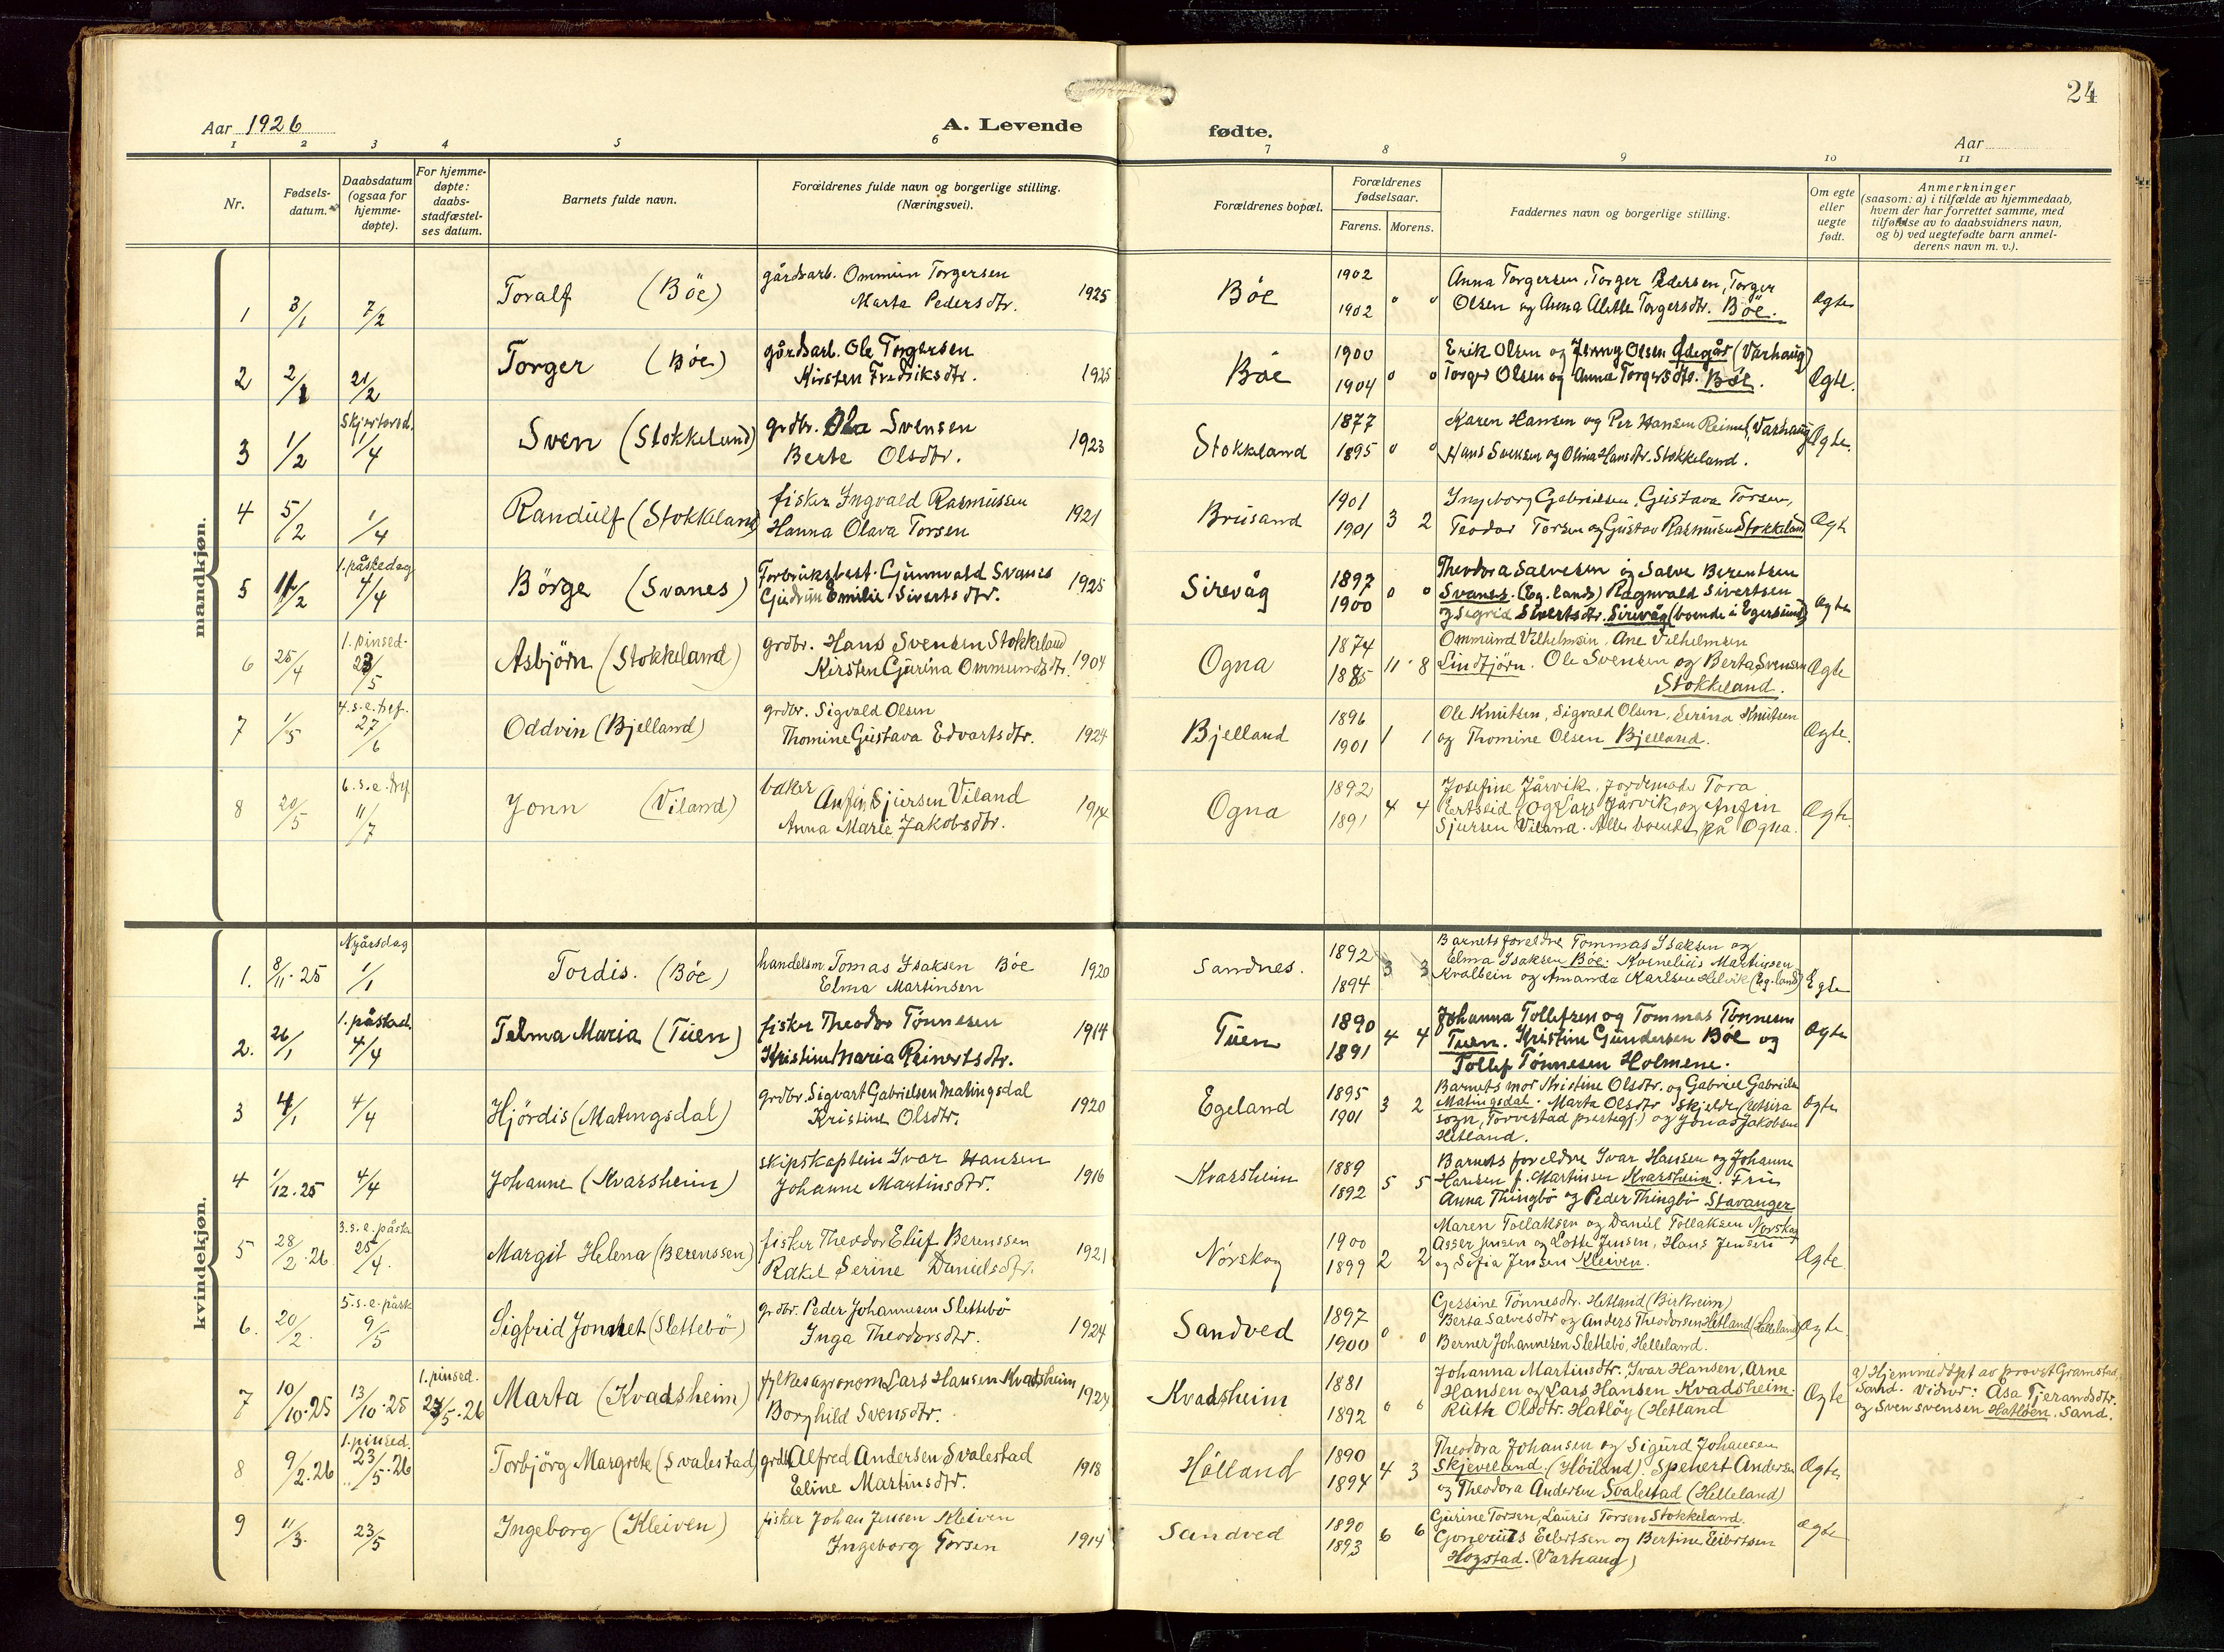 24
Aar 1926
A. Levende
fødte.
Aar
1 2 3 4 5 6 7 8 9 10 11
Nr.
Fødsels-
datum.
Daabsdatum
(ogsaa for
hjemme-
døpte).
For hjemme-
døpte:
daabs-
stadfæstel-
ses datum.
Barnets fulde navn.
Forældrenes fulde navn og borgerlige stilling.
(Næringsvei).
Forældrenes bopæl.
Forældrenes
fødselsaar.
Farens. Morens.
Faddernes navn og borgerlige stilling.
Om egte
eller
uegte
født.
Anmerkninger
(saasom: a) i tilfælde av hjemmedaab,
hvem der har forrettet samme, med
tilføielse av to daabsvidners navn,
og b) ved uegtefødte barn anmel-
derens navn m. v.).
mandkjøn.
1 3/1 7/2 Toralf (Böe)
gårdsarb. Ommun Torgersen
Marta Pedersdtr. 1925
Böe 1902 1902 0 0
Anna Torgersen, Torger Pedersen, Torger
Olsen og Anna Alette Torgersdtr. Böe.
Ægte
2 2/1 21/2 Torger (Böe)
gårdsarb. Ole Torgersen
Kirsten Fredriksdtr. 1925
Böe 1900 1904 0 0
Erik Olsen og Jenny Olsen Ødegår (Varhaug)
Torger Olsen og Anna Torgersdtr. Böe.
Ægte.
3 1/2 Skjærtorsd. 1/4 Sven (Stokkeland)
grdbr. Ola Svensen
Berte Olsdtr. 1923
Stokkeland 1877 1895 0 0
Karen Hansen og Per Hansen Reime (Varhaug
Hans Svensen og Olina Hansdtr. Stokkeland.
Ægte.
4 5/2 1/4 Randulf (Stokkeland)
fisker Ingvald Rasmussen
Hanna Olava Torsen 1921
Brusand 1901 1901 3 2
Ingeborg Gabrielsen, Gustava Torsen,
Teodor Torsen og Gustav Rasmussen Stokkeland
Ægte
5 11/2 1. påskedag 4/4 Börge (Svanes)
Forbruksbest. Gunnvald Svanes
Gudrun Emilie Sivertsdtr. 1925
Sirevåg 1897 1900 0 0
Theodora Salvesen og Salve Berentsen
Svanes. (Eg. lands) Ragnvald Sivertsen
og Sigrid Sivertsdtr. Sirevåg (boende i Egersund)
Ægte
6 25/4 1. pinsed. 23/5 Asbjörn (Stokkeland)
grdbr. Hans Svensen Stokkeland
Kirsten Gurina Ommundsdtr. 1904
Ogna 1874 1885 11 8
Ommund Vilhelmsen, Ane Vilhelmsen
Lindtjörn. Ole Svensen og Berta Svensen
Stokkeland.
Ægte
7 1/5 4. s. e. tref. 27/6 Oddvin (Bjelland)
grdbr. Sigvald Olsen
Thomine Gustava Edvartsdtr. 1924
Bjelland 1896 1901 1 1
Ole Knutsen, Sigvald Olsen, Serina Knutsen
og Thomine Olsen Bjelland.
Ægte.
8 20/5 6. s. e. tref. 11/7 Jonn (Viland)
baker Anfin Sjursen Viland
Anna Marie Jakobsdtr. 1914
Ogna 1892 1891 4 4
Josefine Jårvik, Jordemoder Tora
Lars Jårvik og Anfin
Sjursen Viland. Alle boende på Ogna.
Ægte
kvindekjøn.
1. 8/11 25 Nyårsdag 1/1 Tordis. (Böe)
handelsm. Tomas Isaksen Böe
Elma Martinsen 1920
Sandnes. 1892 1894 3 3
Barnets foreldre Tommas Isaksen og
Elma Isaksen Böe. Kornelius Martinsen
Kvalbein og Amanda Karlsen Helvik (Eg. land)
Egte
2. 26/1 1. påsked. 4/4 Telma Maria (Tuen)
fisker Theodor Tönnesen
Kristine Maria Reinertsdtr. 1914
Tuen 1890 1891 4 4
Johanna Tollefsen og Tommas Tönnesen
Tuen. Kristine Gundersen Böe og
Tollef Tönnesen Holmene.
Ægte
3 4/1 4/4 Hjördis (Matingsdal)
grdbr. Sigvart Gabrielsen Matingsdal
Kristine Olsdtr. 1920
Egeland 1895 1901 3 2
Barnets mor Kristine Olsdtr. og Gabriel Gabrielsen
Matingsdal. Marta Olsdtr Skjelde (Utsira
sogn, Torvestad prestegj.) og Jonas Jakobsen
Hetland.
Ægte
4 1/12.25 4/4 Johanne (Kvarsheim)
skipskaptein Ivar Hansen
Johanne Martinsdtr. 1916
Kvassheim 1889 1892 5 5
Barnets foreldre Ivar Hansen og Johanne
Hansen f. Martinsen Kvarsheim. Fru
Anna Thingbö og Peder Thingbö Stavanger
5 28/2.26 3. s. e. påske 25/4. Margit Helena (Berenssen)
fisker Theodor Eluf Berenssen
Rakel Serine Danielsdtr. 1921
Nörskog 1900 1899 2 2
Maren Tollaksen og Daniel Tollaksen Norskog
Asser Jensen og Lotte Jensen, Hans Jensen
og Sofia Jensen Kleiven.
Ægte
6. 20/2. 5. s. e. påsk 9/5 Sigfrid Jonnhet (Slettebö)
grdbr. Peder Johannesen Slettebö
Inga Theodorsdtr. 1924
Sandved 1897 1900 0 0
Gessine Tönnesdtr. Hetland (Birkreim)
Berta Salvesdtr og Anders Theodorsen Hetland (Helleland)
Berner Johannesen Slettebö, Helleland.
Ægte
7 10/10.25 13/10.25 1. pinsed. 23/5.26 Marta (Kvadsheim)
fylkesagronom Lars Hansen Kvadsheim
Borghild Svensdtr. 1924
Kvadsheim 1881 1892 0 0
Johanna Martinsdtr. Ivar Hansen, Arne
Hansen og Lars Hansen Kvadsheim.
Ruth Olsdtr. Hatlöy (Hetland
Ægte
a) Hjemmedöpt av provst Gramstad,
Sand. Vidner: Åsa Tjerandsdtr.
og Sven Svensen Hatlöen. Sand.
8 9/2.26 1. pinsed. 23/5.26 Torbjörg Margrete (Svalestad)
grdbr Alfred Andersen Svalestad
Eline Martinsdtr. 1918
Hålland 1890 1894 4 3
Theodora Johansen og Sigurd Johansen
Skjeveland. (Höiland). Spenert Andersen
og Theodora Andersen Svalestad (Helleland)
Ægte
9 11/3. 23/5 Ingeborg (Kleiven)
fisker Johan Jensen Kleiven
Ingeborg Torsen 1914
Sandved 1890 1893 6 6
Gurine Torsen, Lauris Torsen Stokkeland.
Eilertsen og Bertine Eilertsen
Hogstad. (Varhaug)
Ægte